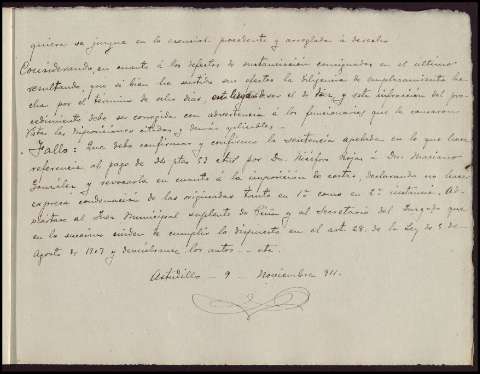 quiera se juzgue en lo esencial procedente y arreglada á derecho
Considerando, en cuanto á los defectos de sustanciación consignados en el último
resultando, que si bien ha surtido sus efectos la diligencia de emplazamiento he-
cha por el término de ocho días, debiendo ser el de tres, y esta infracción del pro-
cedimiento debe ser corregida con advertencia á los funcionarios que la causaron
Vistas las disposiciones citadas y demás aplicables.
Fallo: Que debo confirmar y confirmo la sentencia apelada en lo que hace
referencia al pago de 34 ptas 53 ctms por Dn. Nicéforo Rojas á Dn. Mariano
González y revocarla en cuanto á la imposición de costas, declarando no hacer
expresa condenación de las originadas tanto en 1ª como en 2ª instancia. Ad-
viértase al Juez Municipal suplente de Piña y al Secretario del Juzgado que
en lo sucesivo cuiden de cumplir lo dispuesto en el art. 28 de la Ley de 5 de
Agosto de 1907 y devuélvanse los autos - etc.
Astudillo - 9 - Noviembre 911.